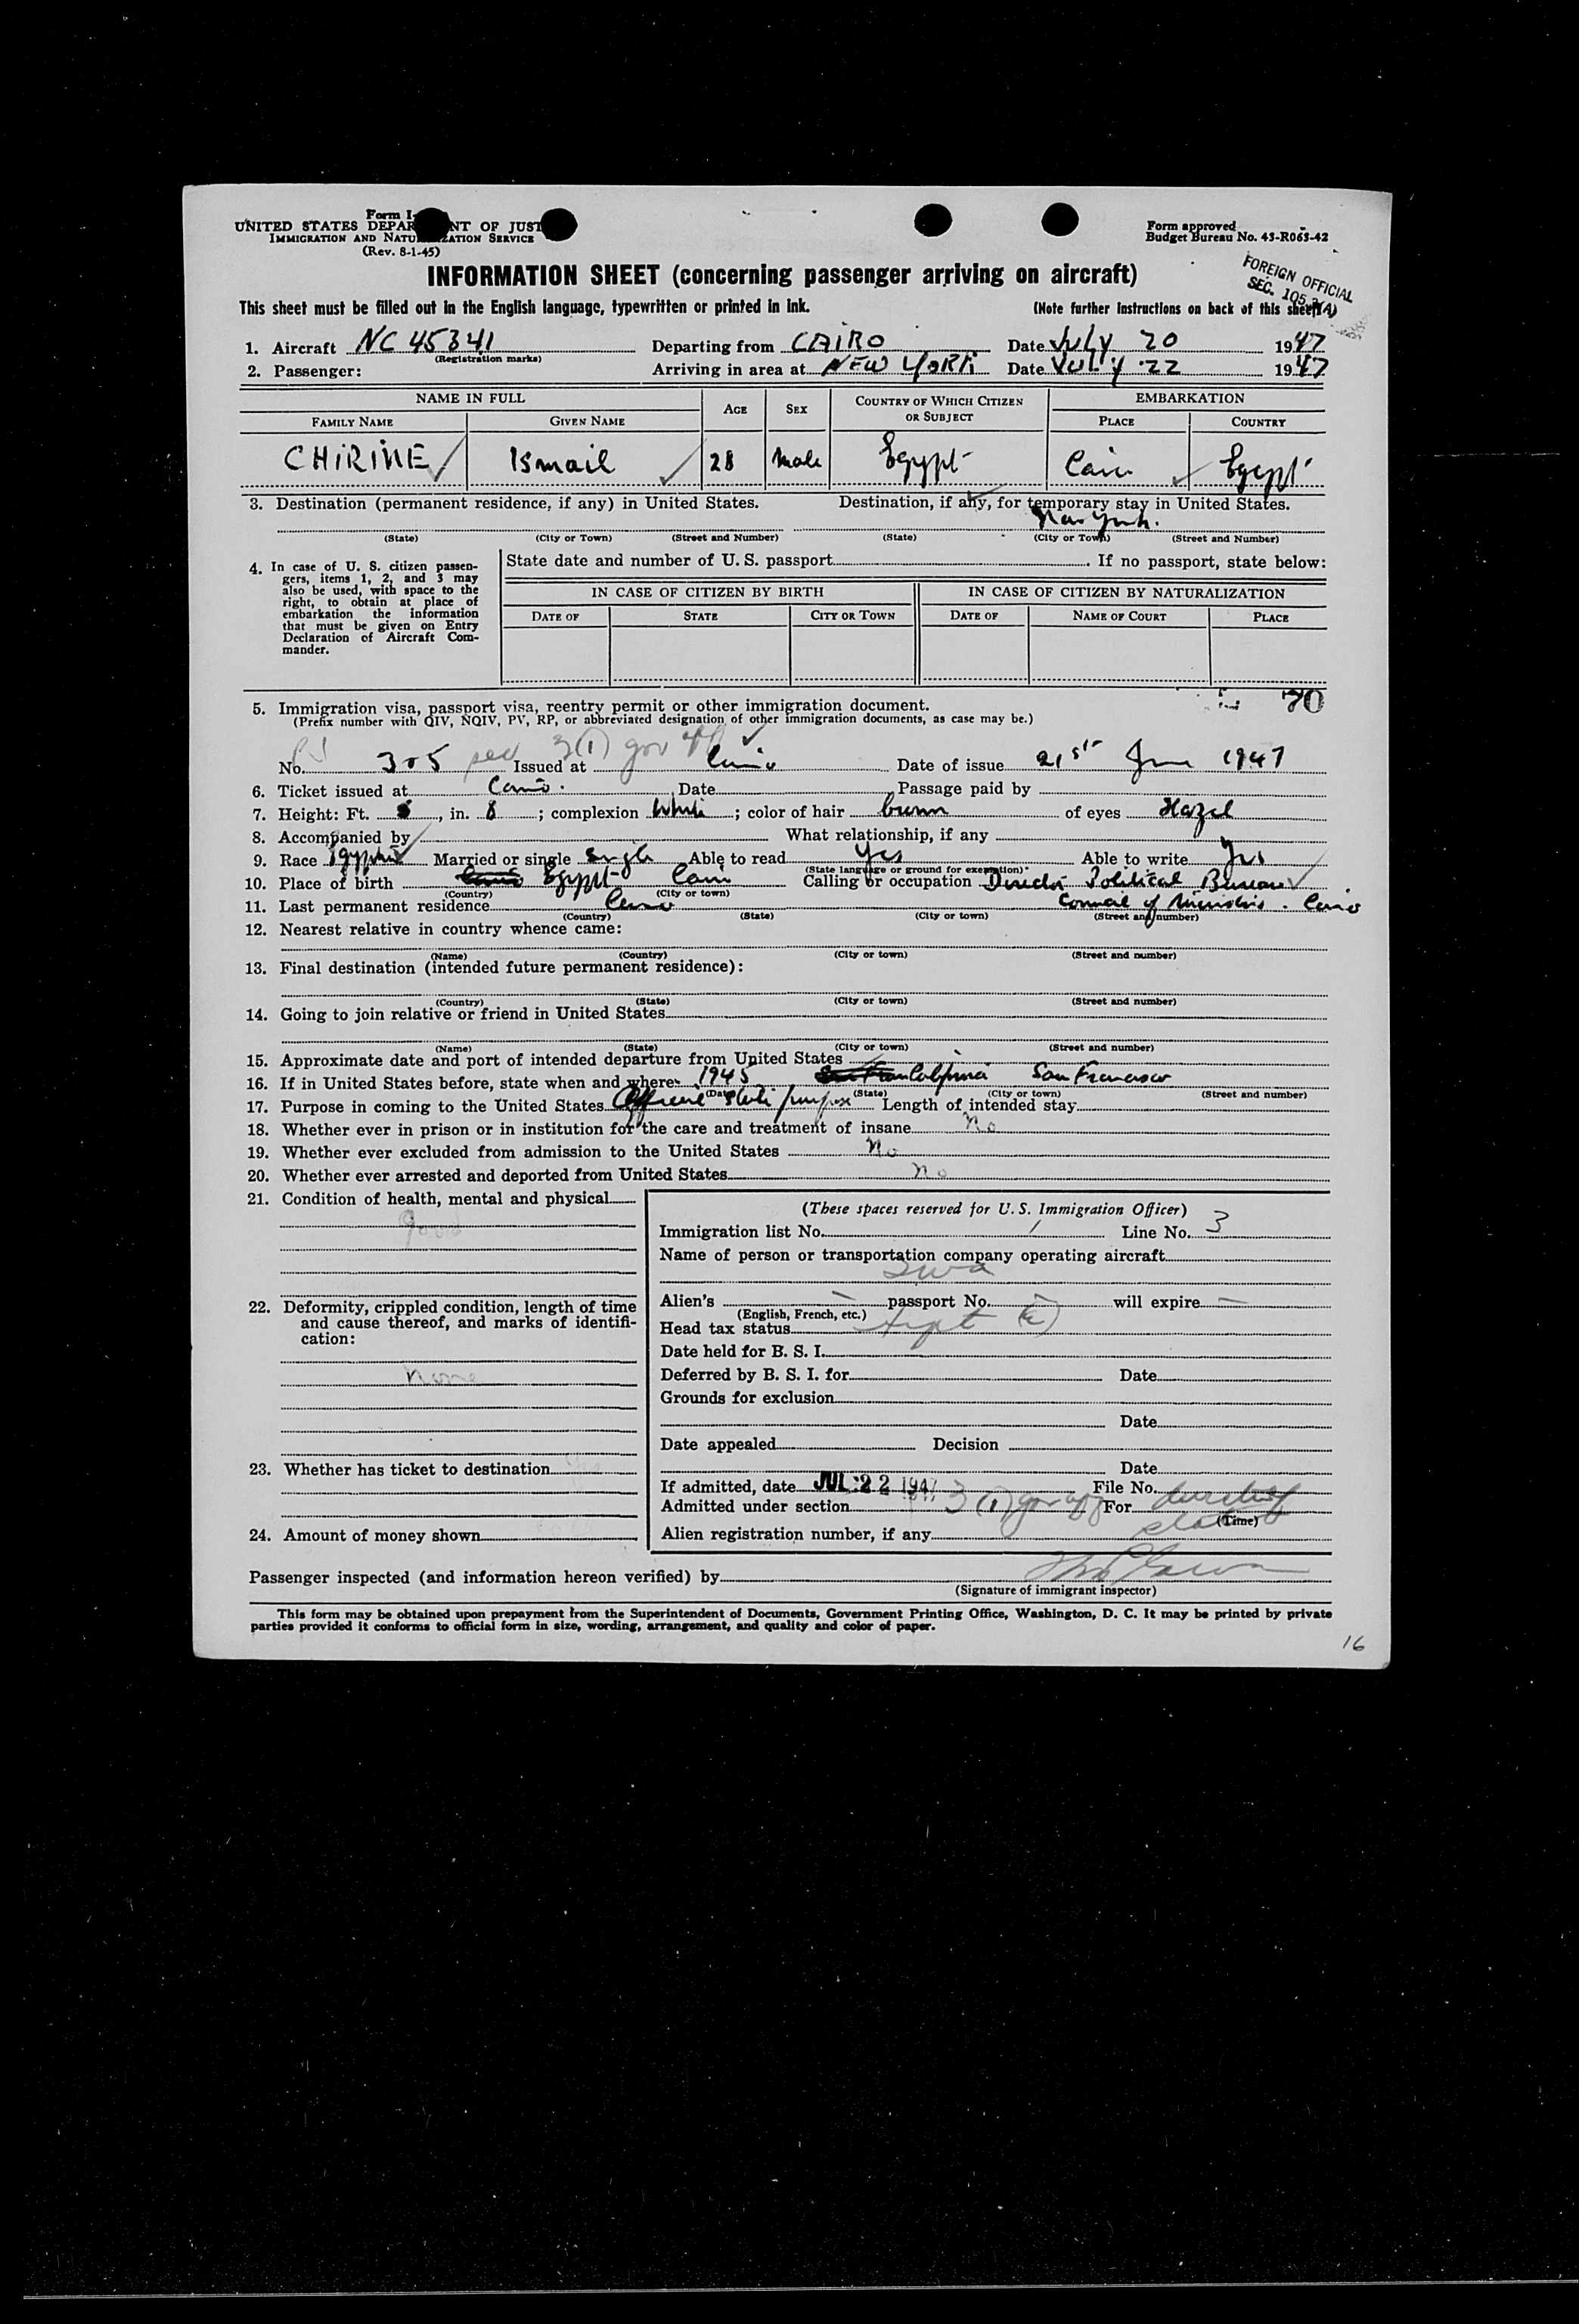 Form I-
UNITED STATES DEPAR NT OF JUST
IMMIGRATION AND NATU ZATION SERVICE
(Rev. 8-1-45)
Form approved
Budget Bureau No. 43-R063-42
FOREIGN OFFICIAL
SEC. 105.3(A)
INFORMATION SHEET (concerning passenger arriving on aircraft)
This sheet must be filled out in the English language, typewritten or printed in ink. (Note further instructions on back of this sheet)
1. Aircraft NC 45341 Departing from CAIRO Date July 20 1947
(Registration marks)
2. Passenger: Arriving in area at NEW YORK Date JULY 22 1947
NAME IN FULL AGE SEX COUNTRY OF WHICH CITIZEN OR SUBJECT EMBARKATION
FAMILY NAME GIVEN NAME PLACE COUNTRY
CHIRINE Ismail 28 Male Egypt Cairo Egypt
3. Destination (permanent residence, if any) in United States. Destination, if any, for temporary stay in United States.
New York.
(State) (City or Town) (Street and Number) (State) (City or Town) (Street and Number)
4. In case of U. S. citizen passen-
gers, items 1, 2, and 3 may
also be used, with space to the
right, to obtain at place of
embarkation the information
that must be given on Entry
Declaration of Aircraft Com-
mander.
State date and number of U. S. passport. If no passport, state below:
IN CASE OF CITIZEN BY BIRTH IN CASE OF CITIZEN BY NATURALIZATION
DATE OF STATE CITY OR TOWN DATE OF NAME OF COURT PLACE
70
5. Immigration visa, passport visa, reentry permit or other immigration document.
(Prefix number with QIV, NQIV, PV, RP, or abbreviated designation of other immigration documents, as case may be.)
3(1) gov off
No. 305 sec Issued at Cairo Date of issue 21st June 1947
6. Ticket issued at Cairo. Date Passage paid by
7. Height: Ft. 5, in. 8; complexion White; color of hair brown of eyes Hazel
8. Accompanied by What relationship, if any
9. Race Egyptian Married or single Single Able to read Yes Able to write Yes
(State language or ground for exemption)
10. Place of birth Egypt Cairo Calling or occupation Director Political Bureau
(Country) (City or town)
11. Last permanent residence Cairo Council of Ministers. Cairo
(Country) (State) (City or town) (Street and number)
12. Nearest relative in country whence came:
(Name) (Country) (City or town) (Street and number)
13. Final destination (intended future permanent residence):
(Country) (State) (City or town) (Street and number)
14. Going to join relative or friend in United States
(Name) (State) (City or town) (Street and number)
15. Approximate date and port of intended departure from United States
16. If in United States before, state when and where- 1945 California San Francisco
(Date) (State) (City or town) (Street and number)
17. Purpose in coming to the United States Official State purpose Length of intended stay
18. Whether ever in prison or in institution for the care and treatment of insane No
19. Whether ever excluded from admission to the United States No
20. Whether ever arrested and deported from United States No
21. Condition of health, mental and physical
good
22. Deformity, crippled condition, length of time
and cause thereof, and marks of identifi-
cation:
None
23. Whether has ticket to destination yes
24. Amount of money shown
(These spaces reserved for U. S. Immigration Officer)
Immigration list No. 1 Line No. 3
Name of person or transportation company operating aircraft
TWA
Alien's — passport No. — will expire —
(English, French, etc.)
Head tax status
Date held for B. S. I.
Deferred by B. S. I. for Date
Grounds for exclusion
Date
Date appealed Decision
Date
If admitted, date JUL 22 1947 File No.
Admitted under section 3(1) gov off For duration of
status (Time)
Alien registration number, if any
Passenger inspected (and information hereon verified) by
(Signature of immigrant inspector)
This form may be obtained upon prepayment from the Superintendent of Documents, Government Printing Office, Washington, D. C. It may be printed by private
parties provided it conforms to official form in size, wording, arrangement, and quality and color of paper.
16